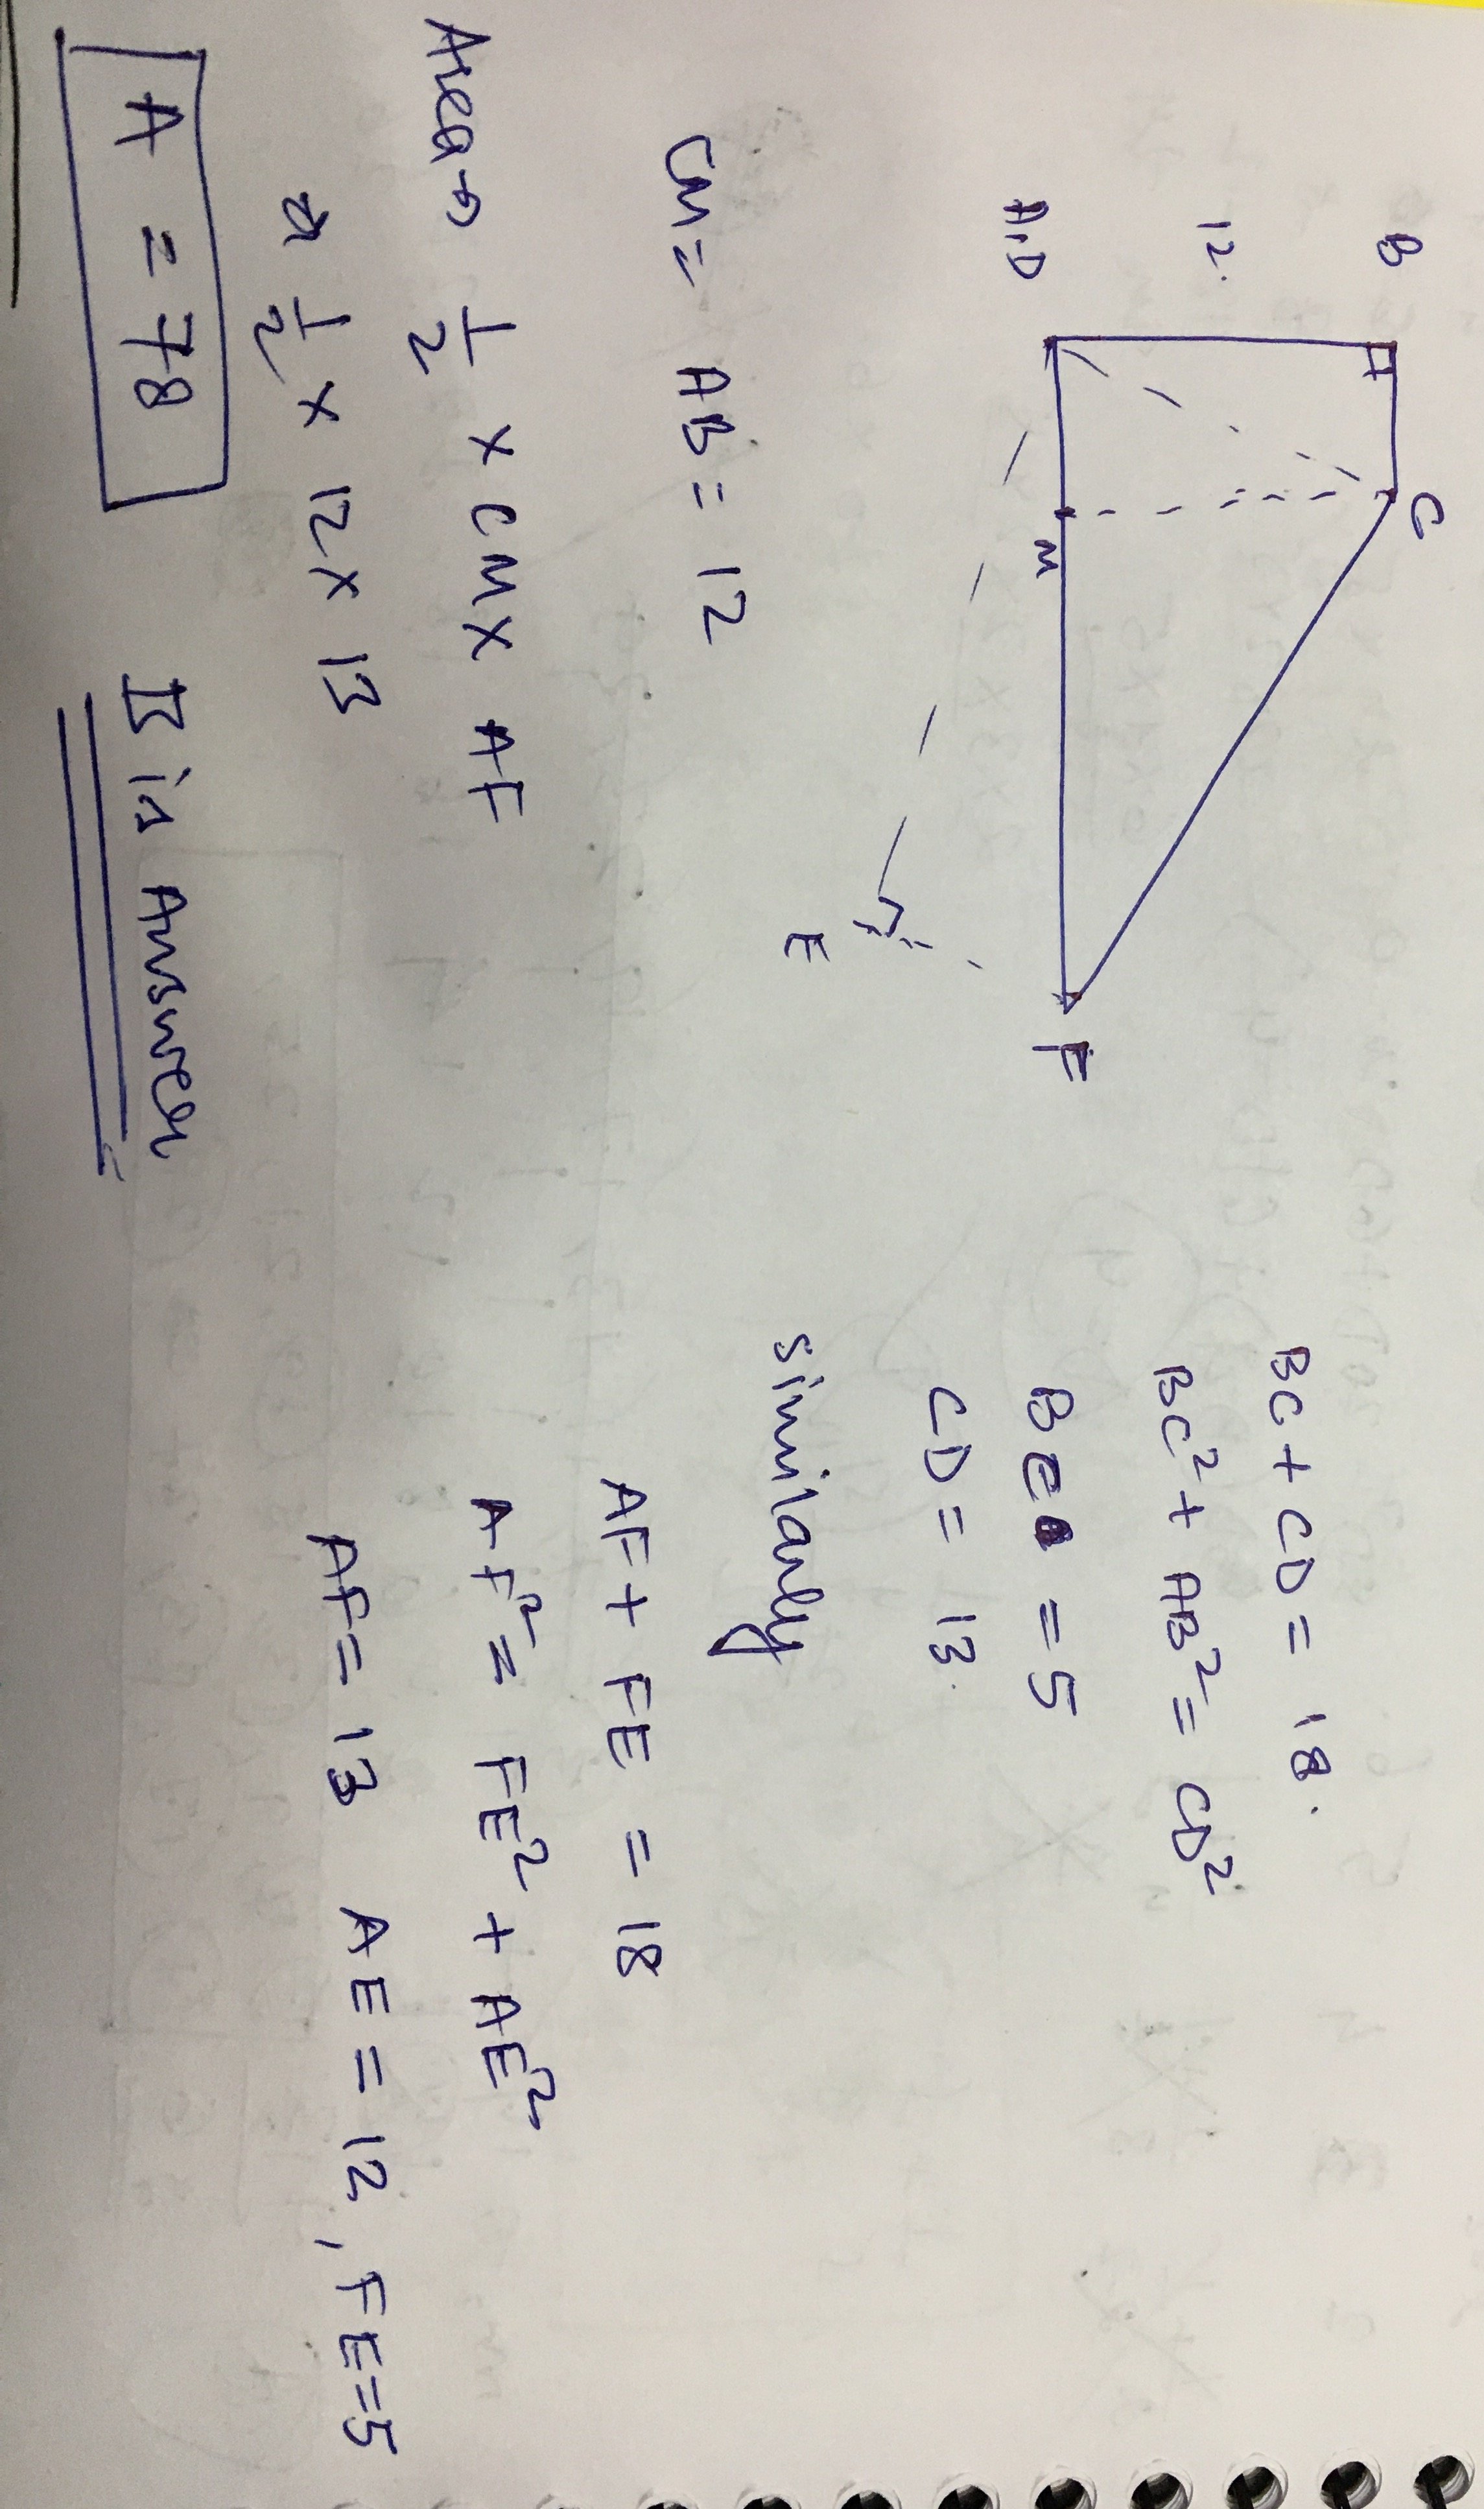 B
C
12.
A,D
M
F
E
BC + CD = 18.
BC² + AB² = CD²
BC = 5
CD = 13.
similarly
AF + FE = 18
AF² = FE² + AE²
AF = 13 AE = 12, FE = 5
CM = AB = 12
Area → 1/2 × CM × AF
1/2 × 12 × 13
A = 78
II is Answer